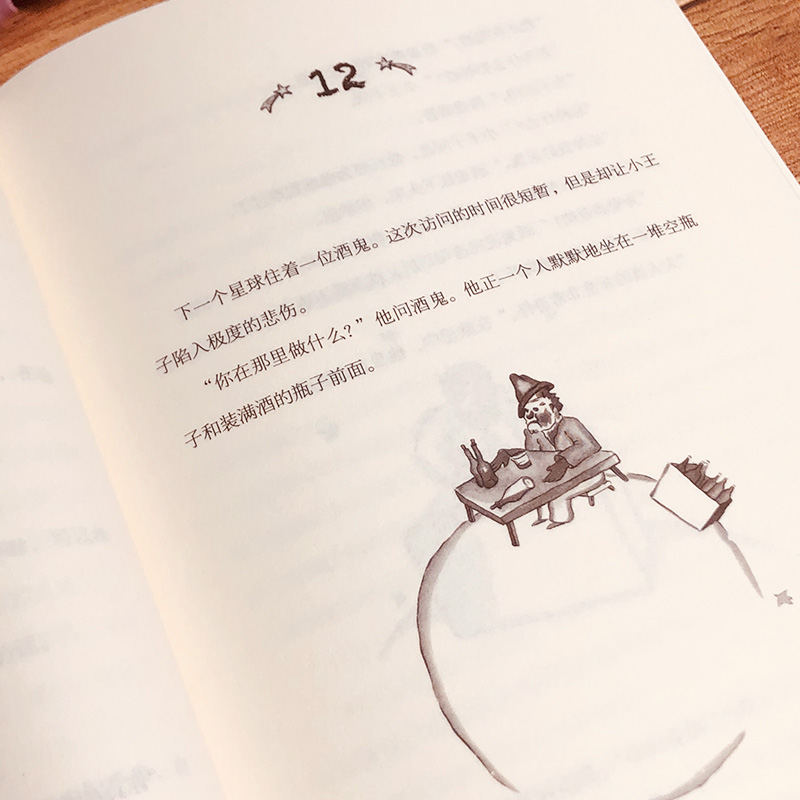 12
下一个星球住着一位酒鬼。这次访问的时间很短暂，但是却让小王
子陷入极度的悲伤。
“你在那里做什么？”他问酒鬼。他正一个人默默地坐在一堆空瓶
子和装满酒的瓶子前面。